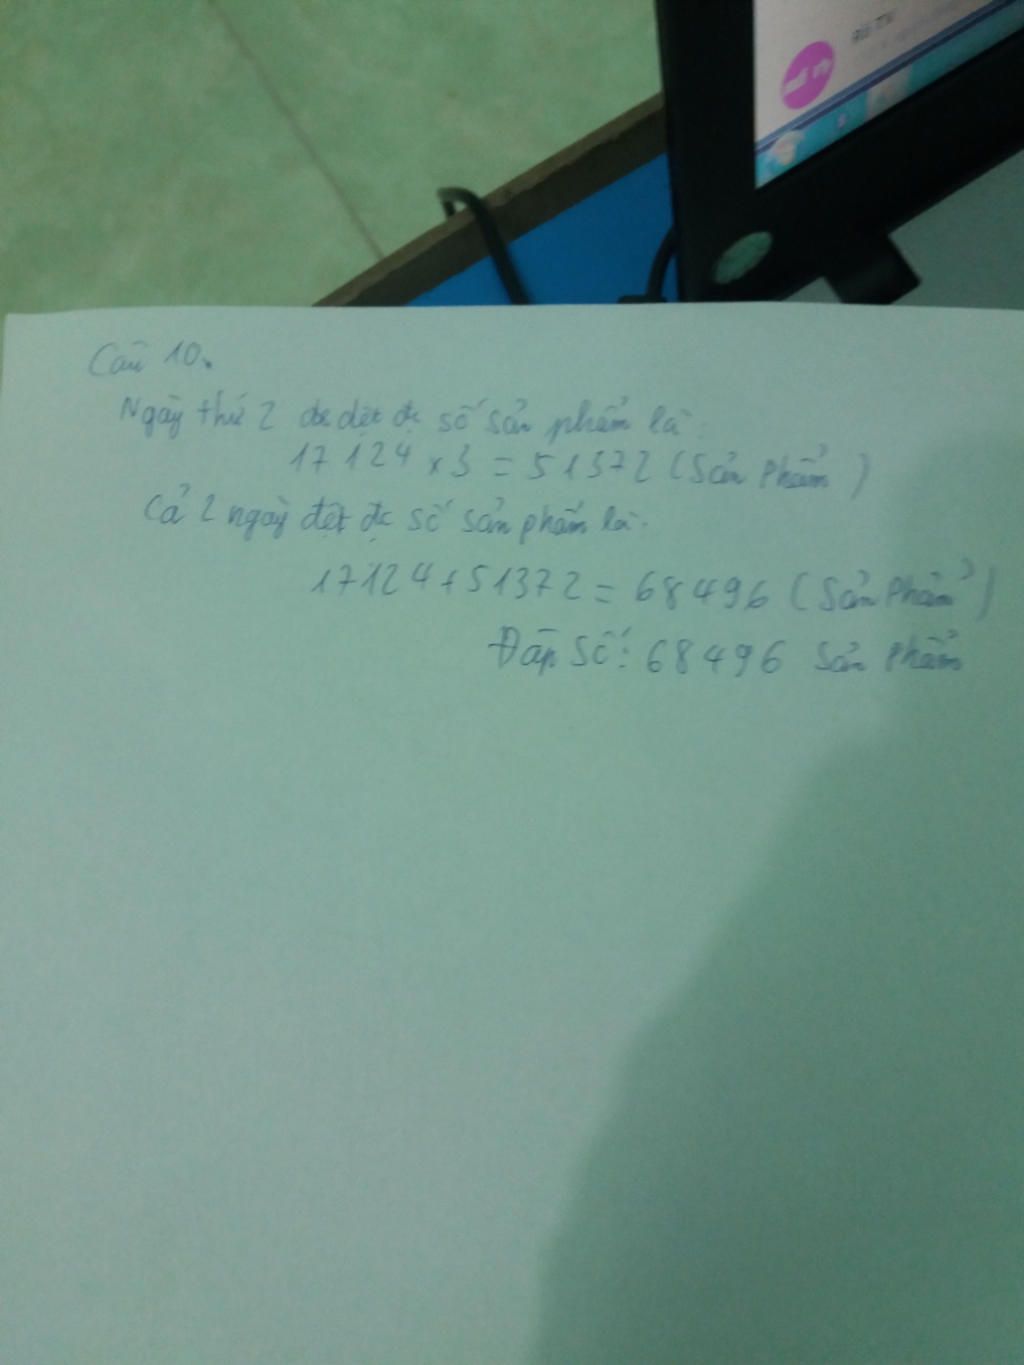 Câu 10.
Ngày thứ 2 dệt đc số sản phẩm là:
17124 x 3 = 51372 (Sản Phẩm)
Cả 2 ngày dệt đc số sản phẩm là:
17124 + 51372 = 68496 (Sản Phẩm)
Đáp Số: 68496 Sản Phẩm